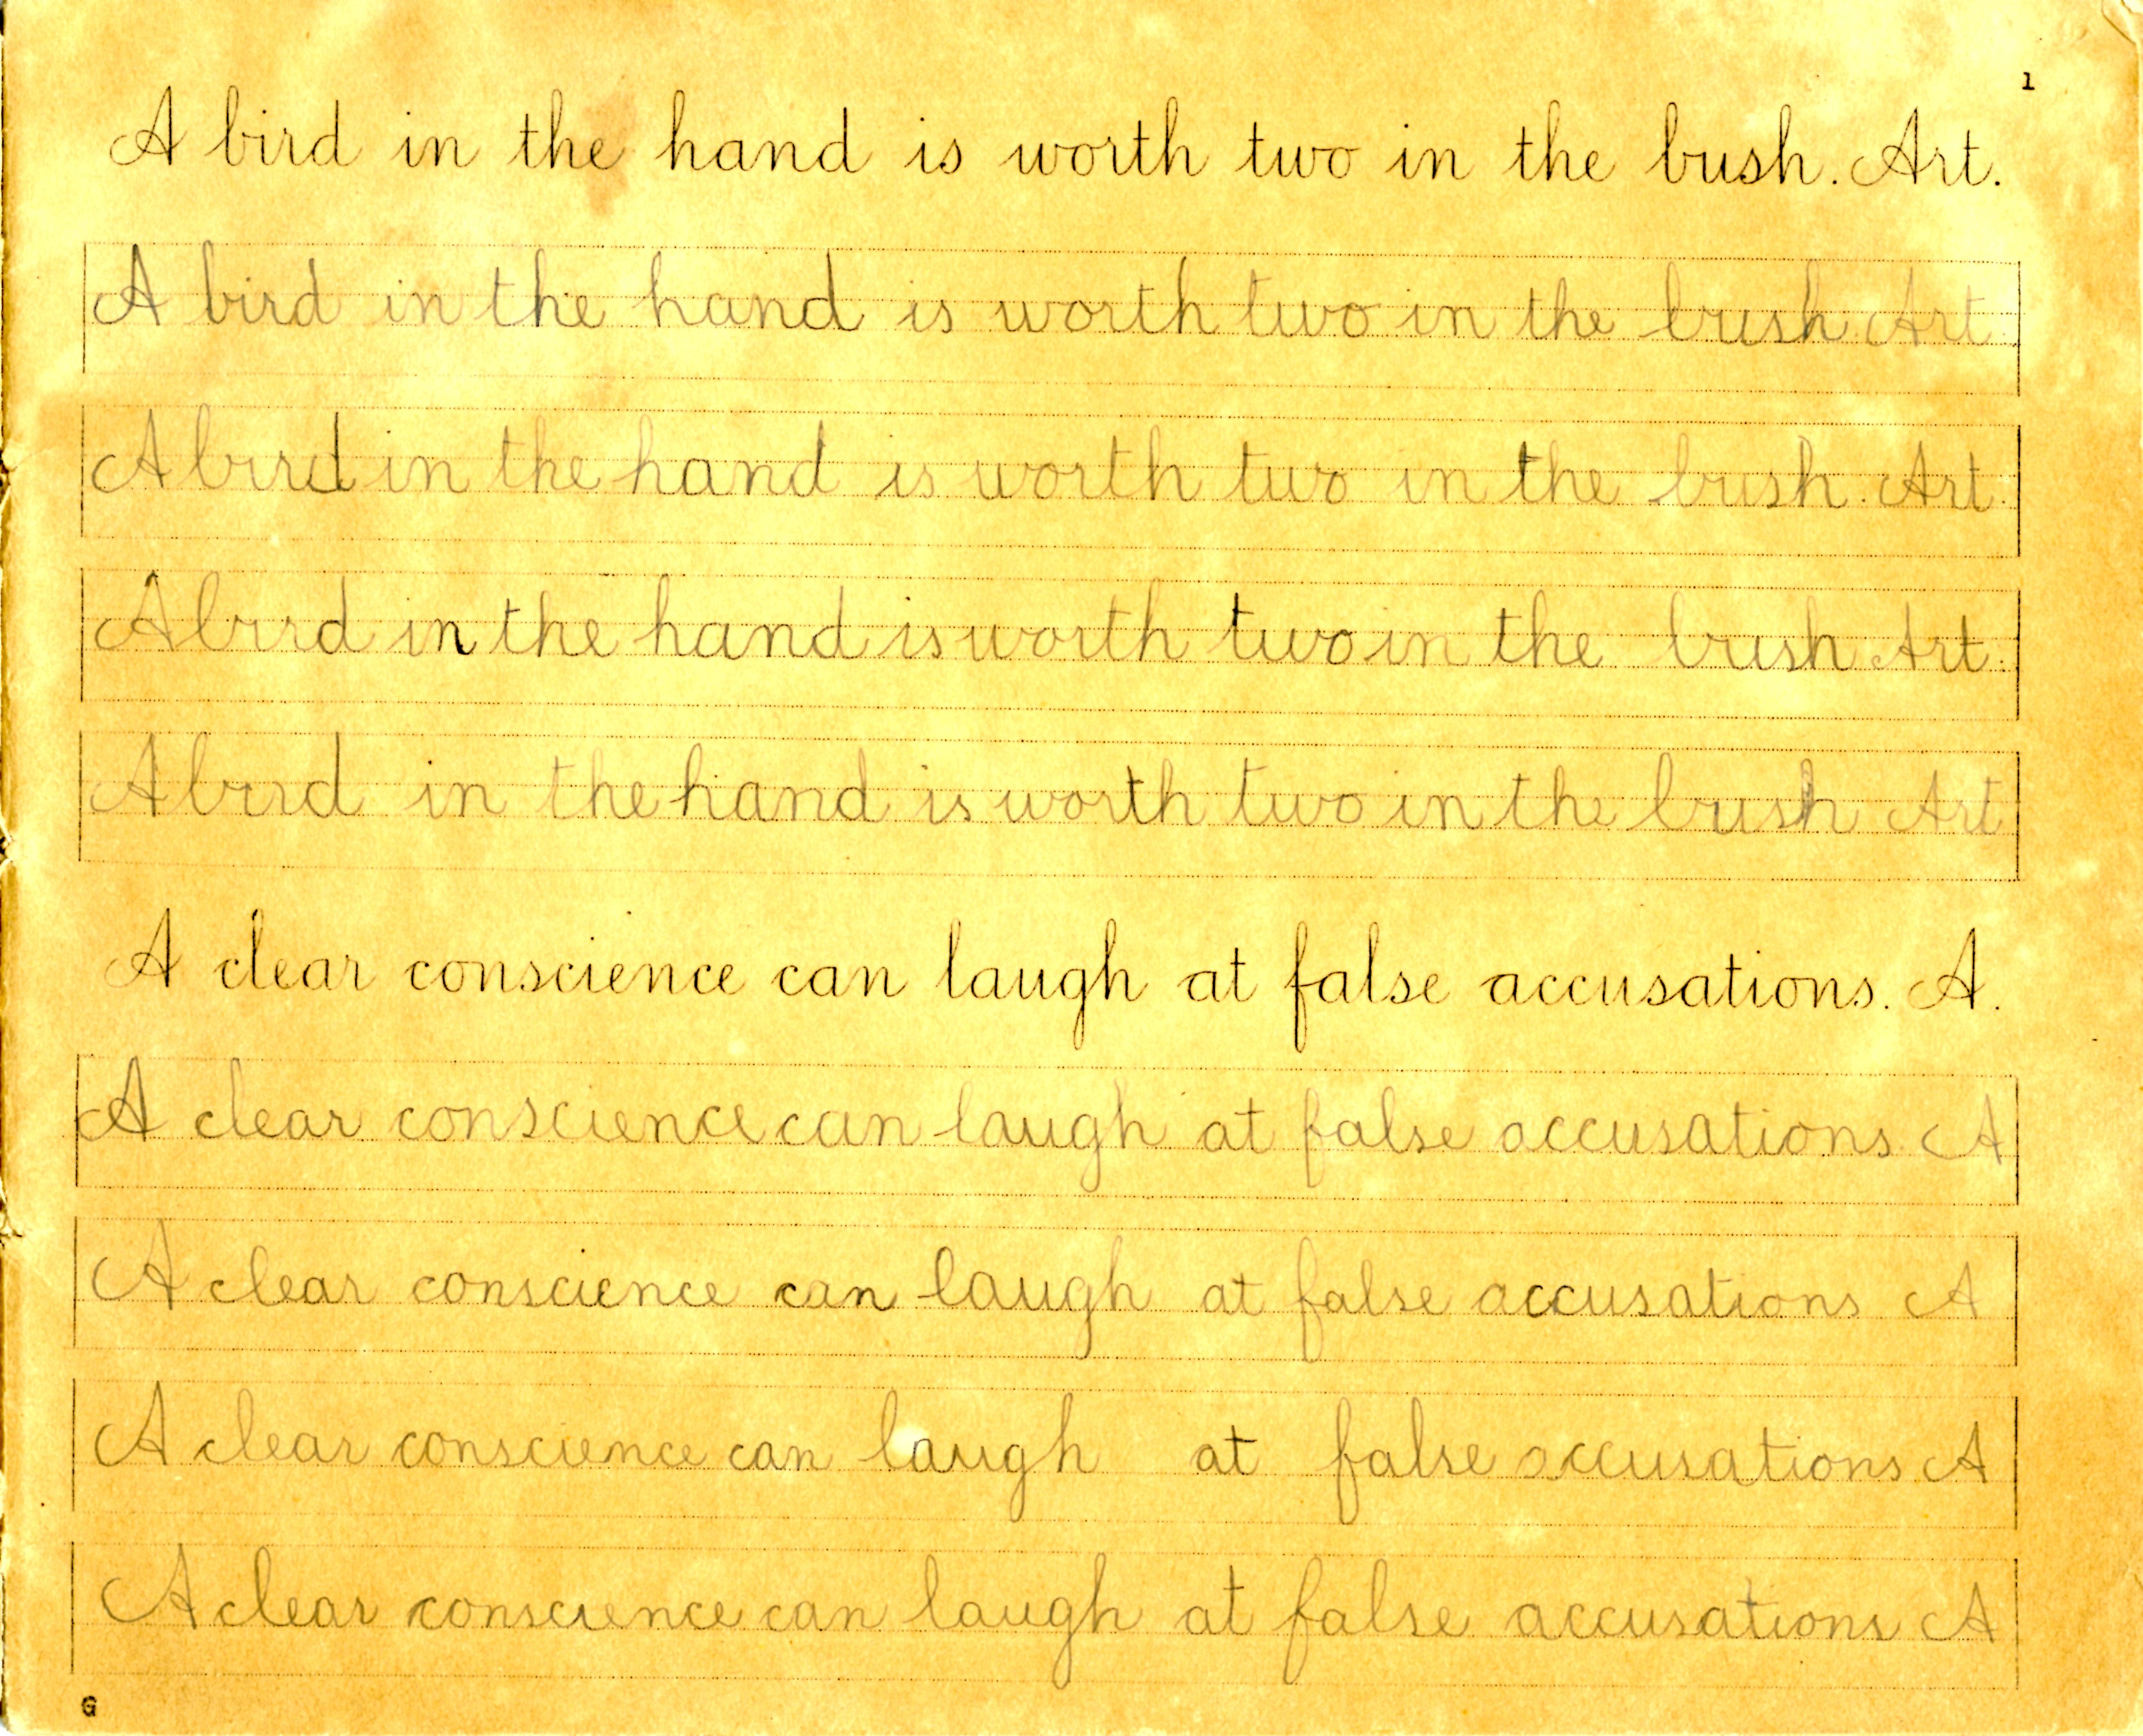 1
A bird in the hand is worth two in the bush. Art.
A bird in the hand is worth two in the bush. Art.
A bird in the hand is worth two in the bush. Art.
A bird in the hand is worth two in the bush Art.
A bird in the hand is worth two in the bush Art
A clear conscience can laugh at false accusations. A.
A clear conscience can laugh at false accusations. A
A clear conscience can laugh at false accusations A
A clear conscience can laugh at false accusations A
A clear conscience can laugh at false accusations A
G